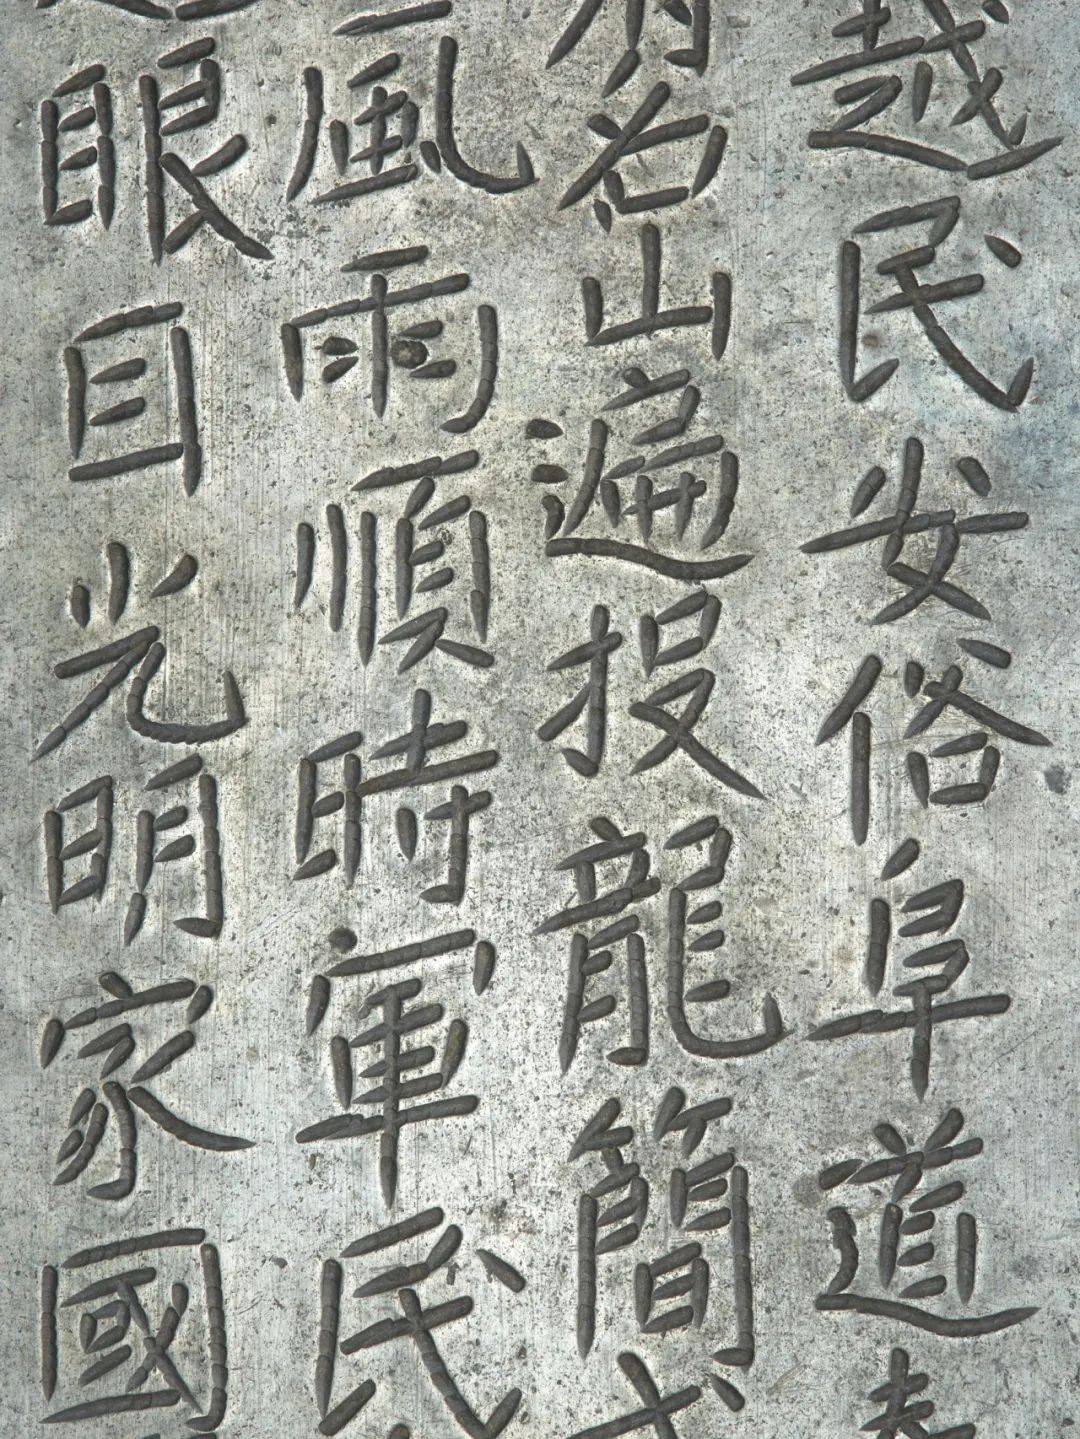 越民安俗阜道
名山遍投龍簡
風雨順時軍民
眼目光明家國